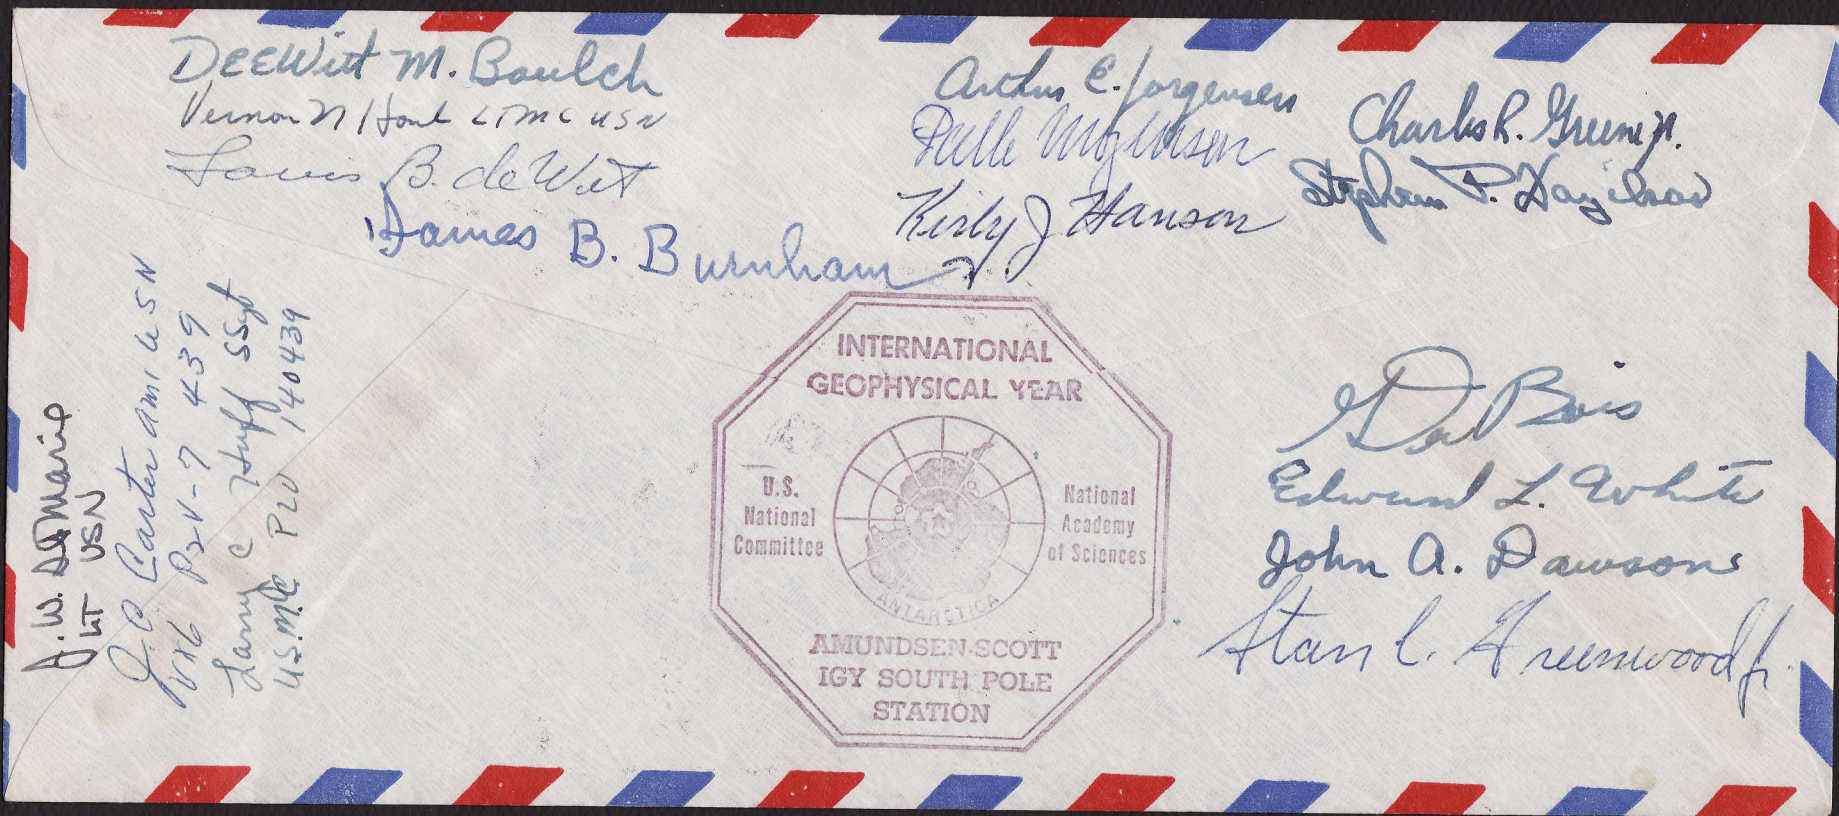 DEEWitt M. Boulch
Vernon N Houk LT MC USN
Louis B. deWit
James B. Burnham
Arthur E. Jorgensen
Palle Mogensen
Kirby J Hanson
Charles R. Greene Jr.
Stephen P. Hazelrod
J. W. DeMarie
LT USN
J. C Carter AM1 USN
VX6 P2V-7 439
Larry C Huff SSgt
U.S.M.C P2V 140439
INTERNATIONAL
GEOPHYSICAL YEAR
U.S.
National
Committee
National
Academy
of Sciences
ANTARCTICA
AMUNDSEN-SCOTT
IGY SOUTH POLE
STATION
DuBois
Edward L. White
John A. Dawson
Stan C. Greenwood Jr.